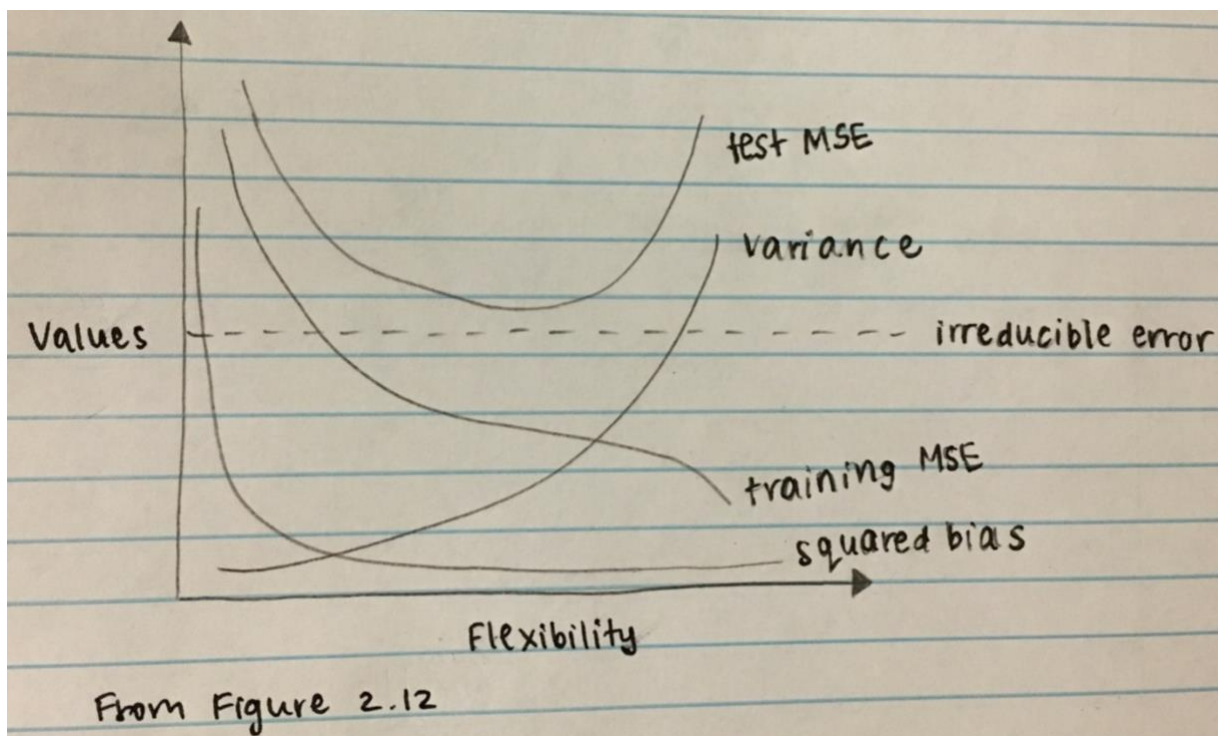 test MSE
variance
Values
irreducible error
training MSE
squared bias
Flexibility
From Figure 2.12